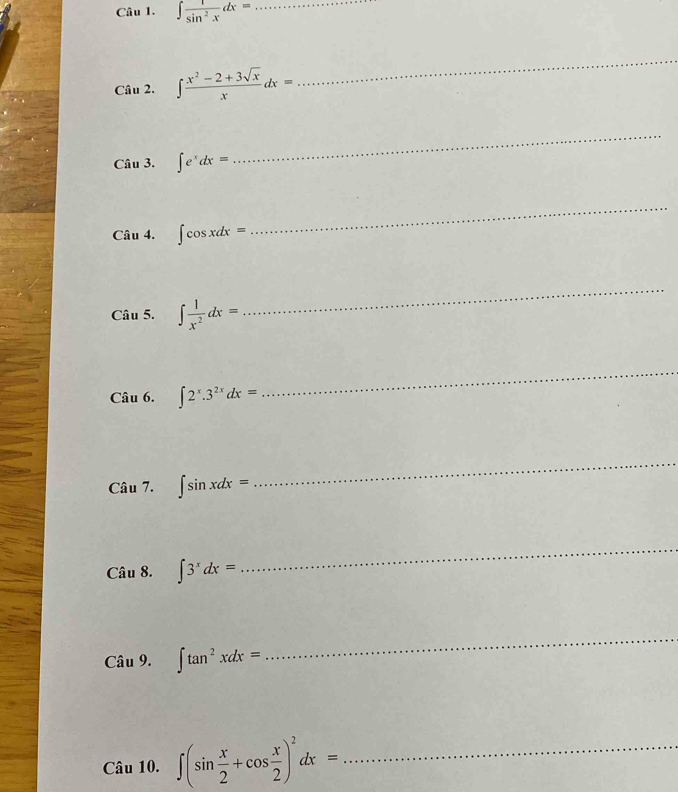 Câu 1. ∫ 1/sin² x dx = ....................
Câu 2. ∫ (x² - 2 + 3√x)/x dx = ....................
Câu 3. ∫ eˣ dx = ....................
Câu 4. ∫ cos xdx = ....................
Câu 5. ∫ 1/x² dx = ....................
Câu 6. ∫ 2ˣ.3²ˣ dx = ....................
Câu 7. ∫ sin xdx = ....................
Câu 8. ∫ 3ˣ dx = ....................
Câu 9. ∫ tan² xdx = ....................
Câu 10. ∫ (sin x/2 + cos x/2)² dx = ....................